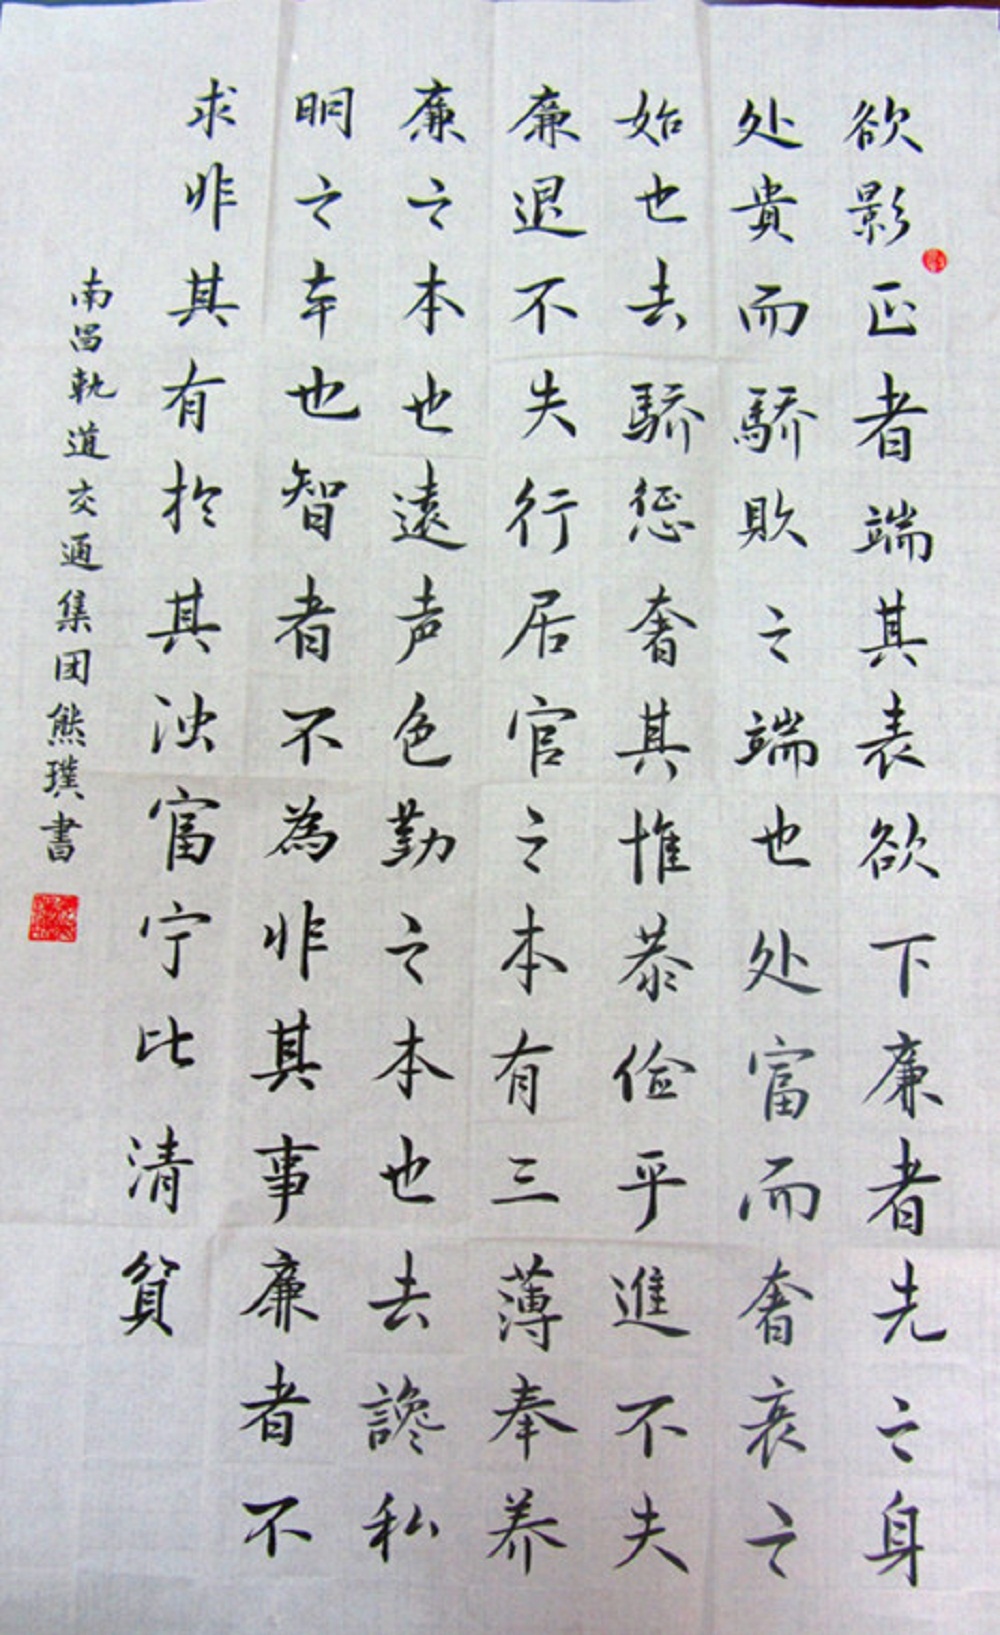 欲影正者端其表欲下廉者先之身
处貴而驕敗之端也处富而奢衰之
始也去驕惩奢其惟恭俭乎進不夫
廉退不失行居官之本有三薄奉养
廉之本也遠声色勤之本也去讒私
明之本也智者不為非其事廉者不
求非其有於其浊富宁比清貧
南昌軌道交通集团熊璞書